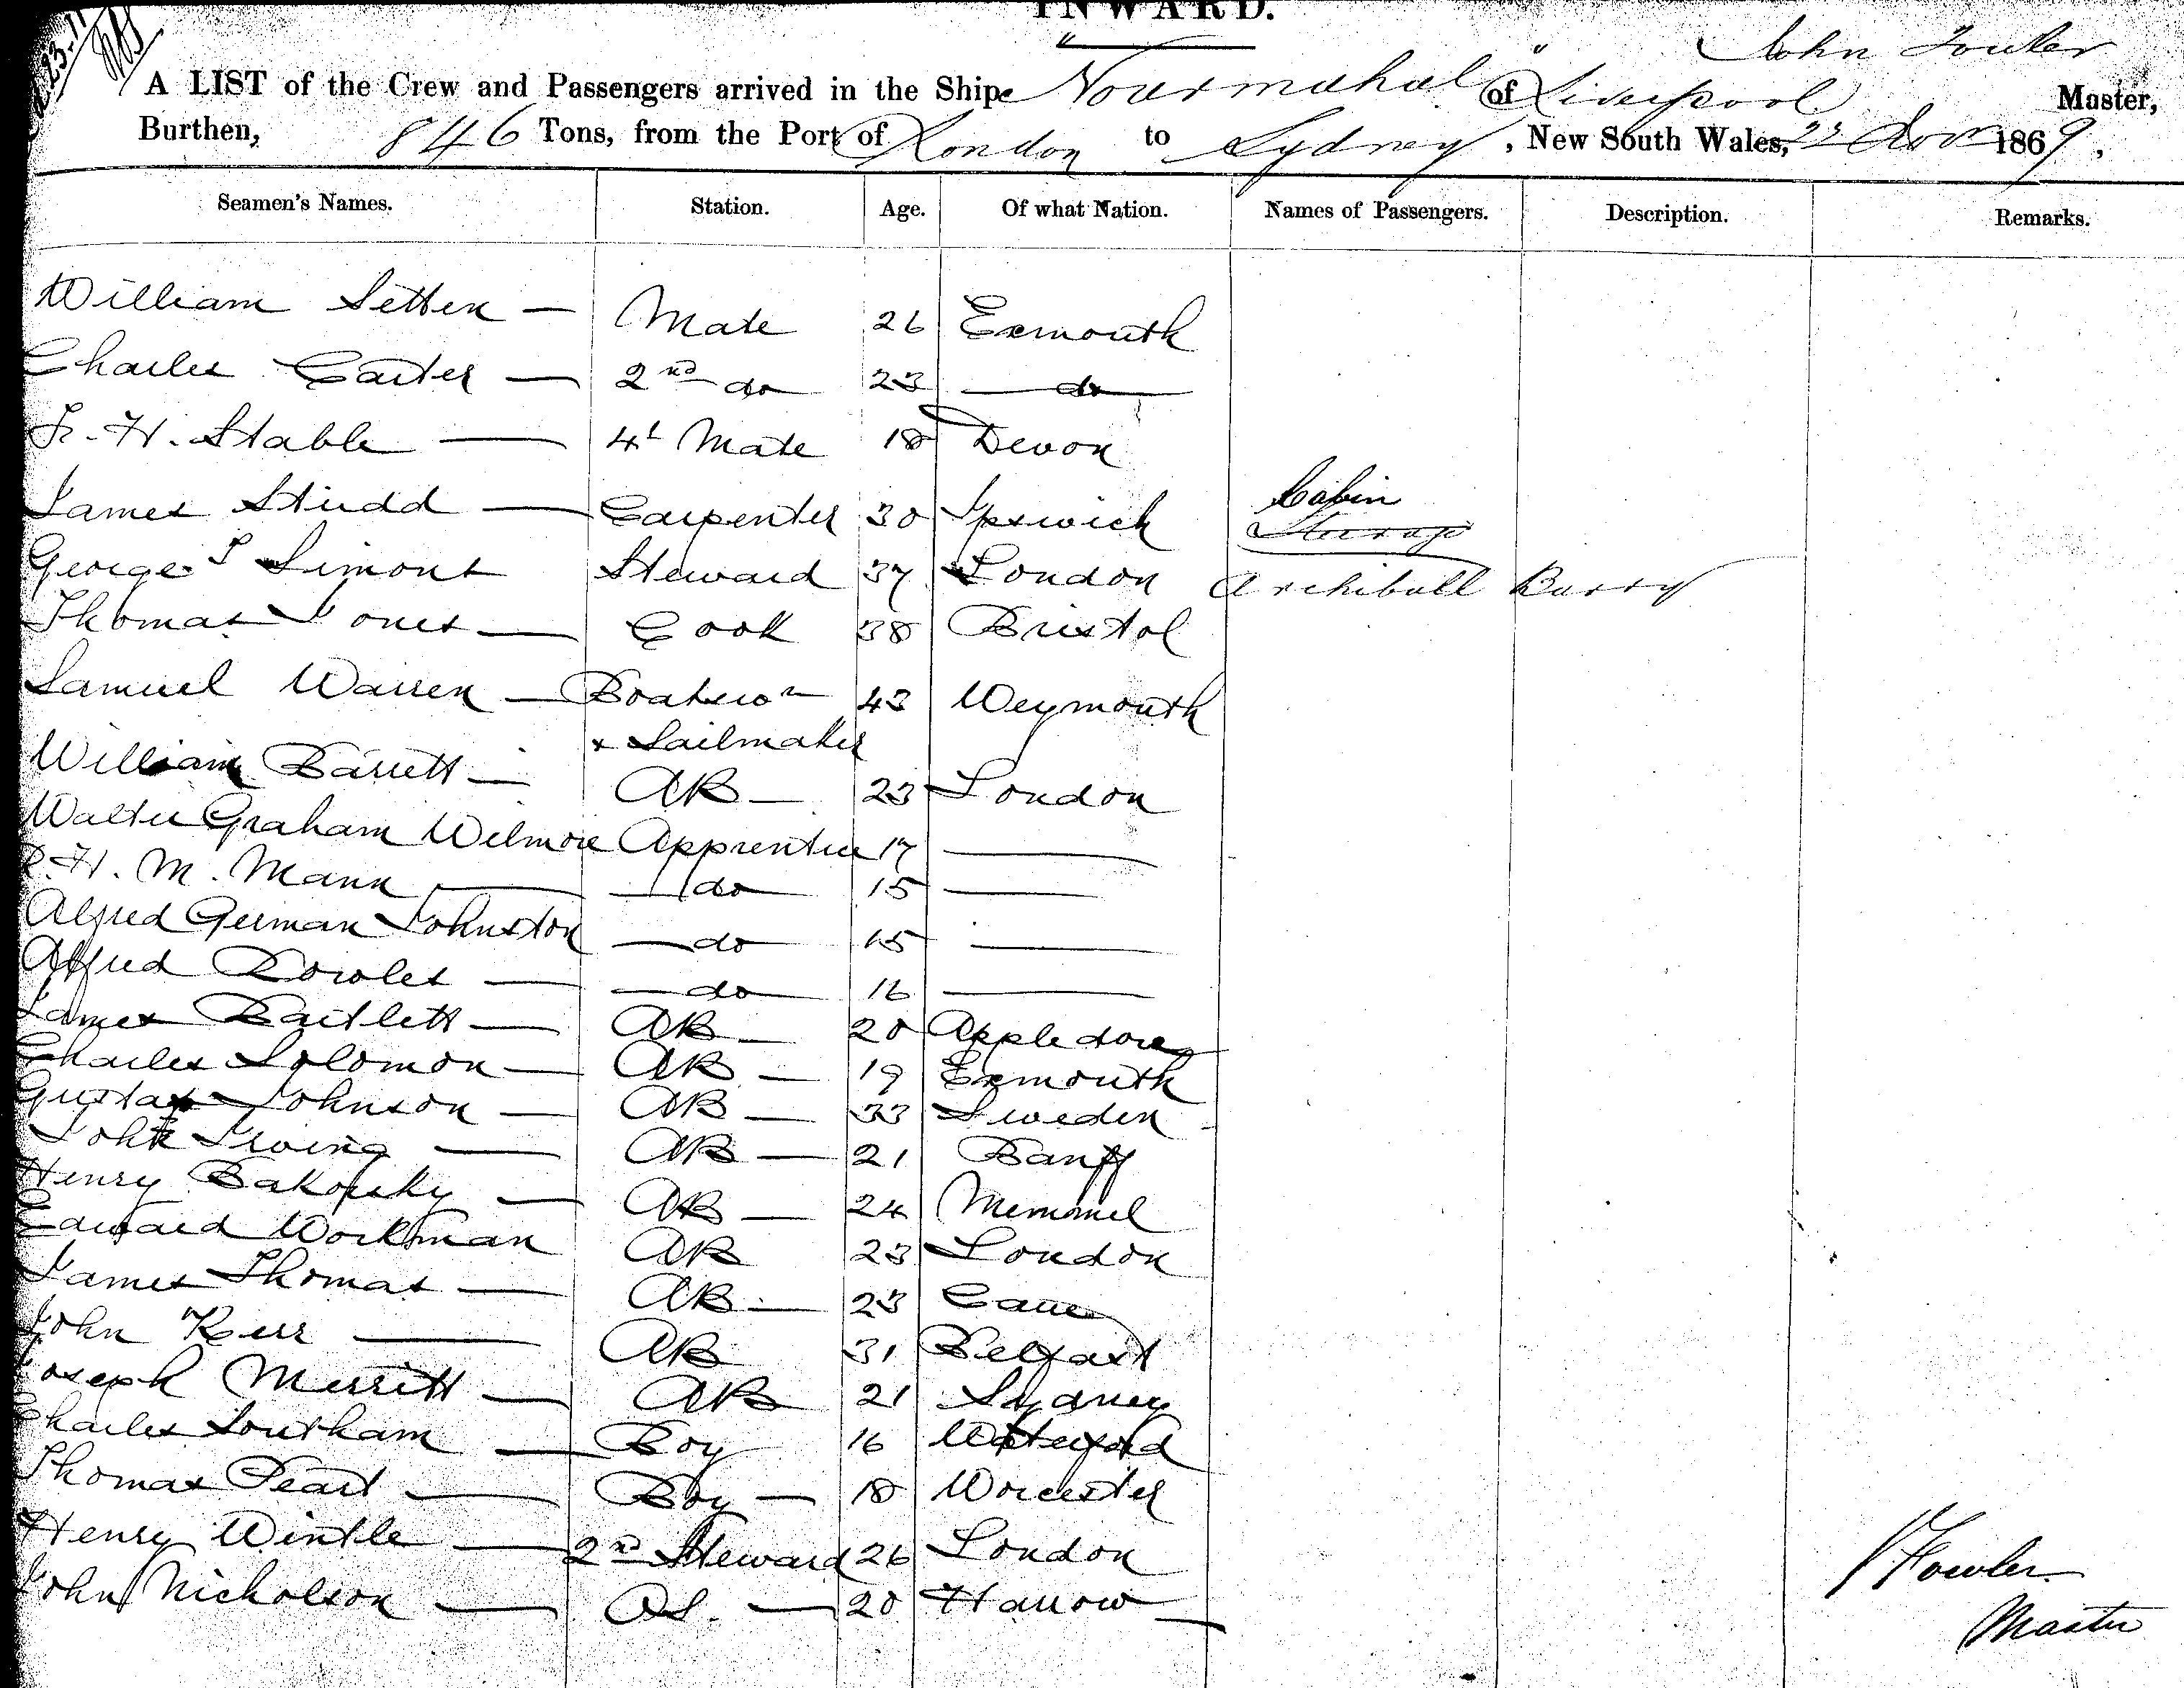 INWARD.
John Fowler
A LIST of the Crew and Passengers arrived in the Ship "Nourmahal" of Liverpool Master,
Burthen, 846 Tons, from the Port of London to Sydney, New South Wales, 23 Novr 1869,
Seamen's Names. Station. Age. Of what Nation. Names of Passengers. Description. Remarks.
William Setten — Mate 26 Exmouth
Charles Carter — 2nd do 23 — do
Fr. H. Stable — 4t Mate 18 Devon
James Studd — Carpenter 30 Ipswich Cabin
Steerage
George S Simons Steward 37 London Archibald Barry
Thomas Jones — Cook 38 Bristol
Samuel Warren — Boatswn 43 Weymouth
+ Sailmaker
William Barrett — AB — 23 London
Walter Graham Wilmore Apprentice 17 —
R. H. M. Mann — do 15 —
Alfred German Johnston — do 15 —
Alfred Bowles — do 16 —
James Bartlett — AB — 20 Appledore
Charles Solomon — AB — 19 Exmouth
Gustaf Johnson — AB — 33 Sweden
John Irving — AB — 21 Banff
Henry Bakowsky — AB — 24 Memmel
Edward Workman AB 23 London
James Thomas — AB — 23
John Kerr — AB 31 Belfast
Joseph Merritt — AB 21 Sydney
Charles Southam — Boy 16 Waterford
Thomas Peart — Boy — 18 Worcester
Henry Wintle — 2nd Steward 26 London
John Nicholson — OS. — 20 Harrow —
J Fowler
Master